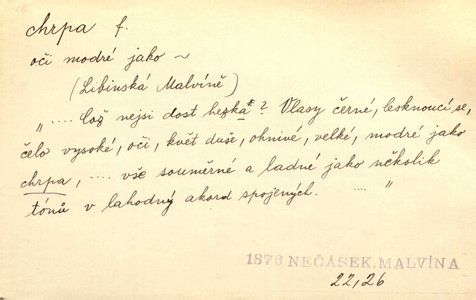 chrpa f.
oči modré jako ~
(Libinská Malvíně)
„ .... Což nejsi dost hezká? Vlasy černé, lesknoucí se,
čelo vysoké, oči, květ duše, ohnivé, velké, modré jako
chrpa, .... vše souměrné a ladné jako několik
tónů v lahodný akord spojených. .... "
1876 NEČÁSEK, MALVÍNA
22, 26